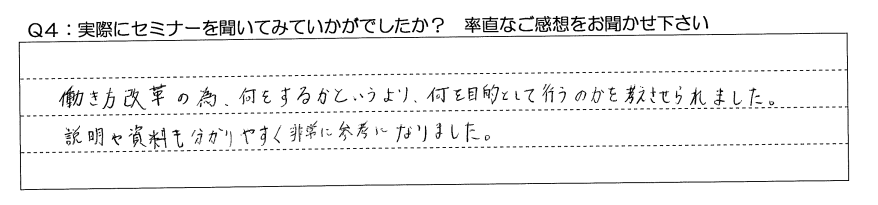 Q4：実際にセミナーを聞いてみていかがでしたか？　率直なご感想をお聞かせ下さい
働き方改革の為、何をするかというより、何を目的として行うのかを考えさせられました。
説明や資料も分かりやすく非常に参考になりました。